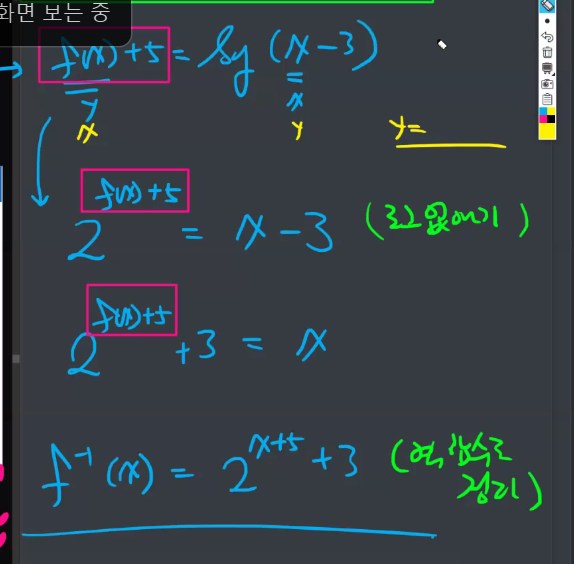 화면 보는 중
f(x)+5 = log (x-3)
y x
x y y=
2^{f(x)+5} = x-3 (로그없애기)
2^{f(x)+5} +3 = x
f⁻¹(x) = 2^{x+5} +3 (역함수로
정리)